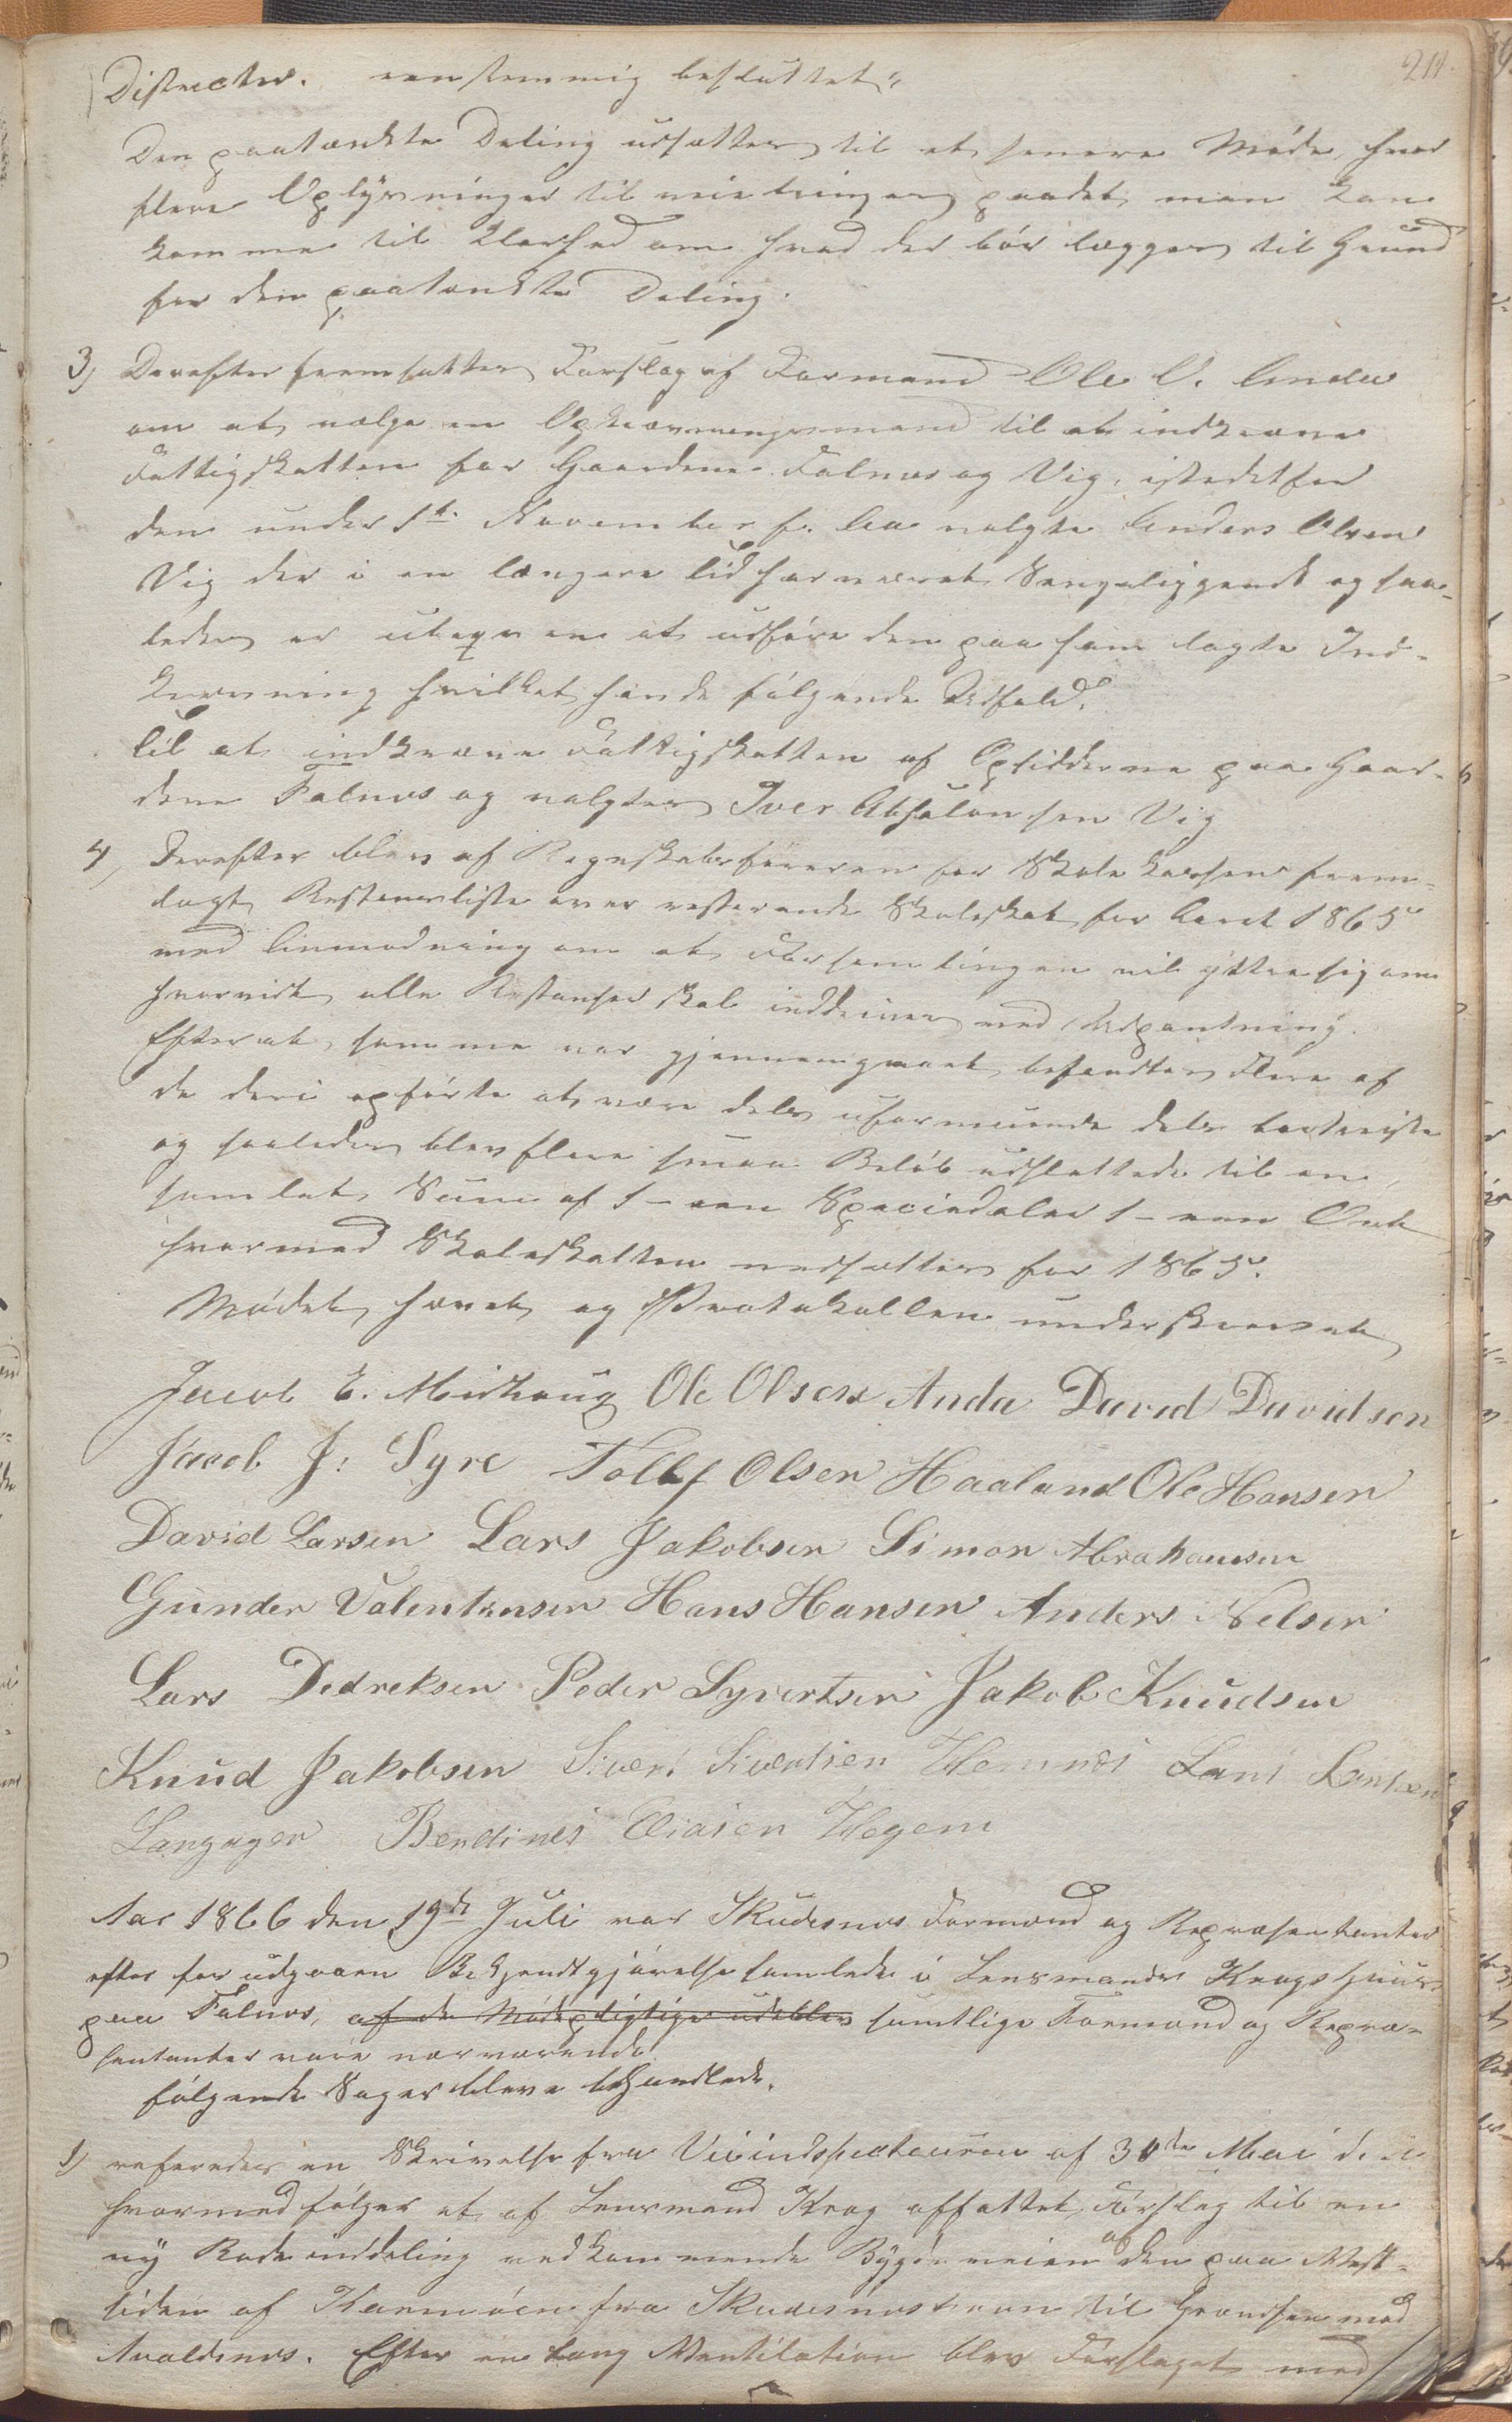 211.
Districter. eenstemmig besluttet:
Den paatænkte Deling udsættes til et senere Møde, hvor
flere Oplysninger til veiebringes paadet man kan
komme til Klarhed om hvad der bør lægges til Grund
for den paatænkte Deling.
3) Derefter fremsattes Forslag af Formand Ole O. Anda
om at vælge en Opkrævningsmand til at indkræve
Fattigskatten for Gaardene Falnæs og Vig, istedetfor
den under 1ste November f. Aa valgte Anders Olsen
Vig der i en længere Tid har været Sengeliggende og saa-
ledes er ude af Stand at udføre den paa ham lagte Ind-
krævning hvilket havde følgende Udfald.
Til at indkræve Fattigskatten af Opsidderne paa Gaar-
dene Falnæs og valgtes Iver Absalonsen Vig
4, Derefter blev af Regnskabsføreren for Skolekassen frem-
lagt Restanceliste over resterende Skoleskat for Aaret 1865
med Anmodning om at Forsamlingen vil yttre sig om
hvorvidt alle Restanser skal inddrives ved Udpantning.
Efterat samme var gjennemgaaet befandtes Flere af
de deri opførte at være dels uformuende dels bortreiste
og saaledes blev flere smaa Beløb udslettede til en
samlet Sum af 1 - een Speciedaler 1 - een Ort
hvormed Skoleskatten nedsættes for 1865.
Mødet hævet og Protokollen underskrevet
Jacob E. Mirhaug Ole Olsen Anda David Davidsen
Jacob J: Syre Tollef Olsen Haaland Ole Hansen
David Larsen Lars Jakobsen Simon Abrahamsen
Gunder Valentinsen Hans Hansen Anders Nelsen
Lars Dedreksen Peder Syvertsen Jakob Knudsen
Knud Jakobsen Siver Sivertsen Hemnes Lars Larsen
Langager Berdines Eliasen Hegem
Aar 1866 den 19de Juli var Skudesnæs Formænd og Repræsentanter
efter forudgaaen Bekjendtgjørelse samlede i Lensmands Krags Huus
paa Falnæs, af de Mødepligtige udeblev samtlige Formænd og Repræ-
sentanter vare nærværende
følgende Sager bleve behandlede.
1) refereredes en Skrivelse fra Veiindspecteuren af 30te Mai d. A
hvormed følger et af Lensmand Krag affattet Forslag til en
ny Rodeinddeling vedkommende Bygdeveien af den paa Vest-
siden af Karmøen fra Skudesnæshavn til Grændsen mod
Avaldsnes. Efter en lang Ventilation blev Forslaget med